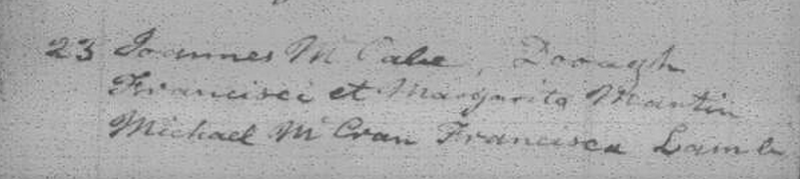 23 Joannes McCabe, Doough
Francisci et Margarita Martin
Michael McCran Francisca Lamb